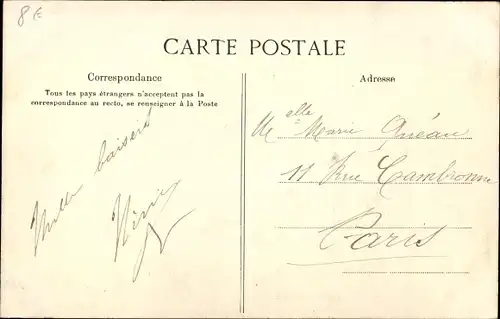 8 €
CARTE POSTALE
Correspondance
Tous les pays étrangers n'acceptent pas la
correspondance au recto, se renseigner à la Poste
Mille baisers
Adresse
Melle Marie
11 Rue Cambronne
Paris